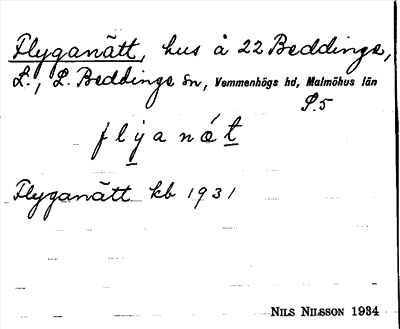 Flyganätt, hus å 22 Beddinge,
L., L. Beddinge sn, Vemmenhögs hd, Malmöhus län
P.5
fljanǻt
Flyganätt kb 1931
NILS NILSSON 1934